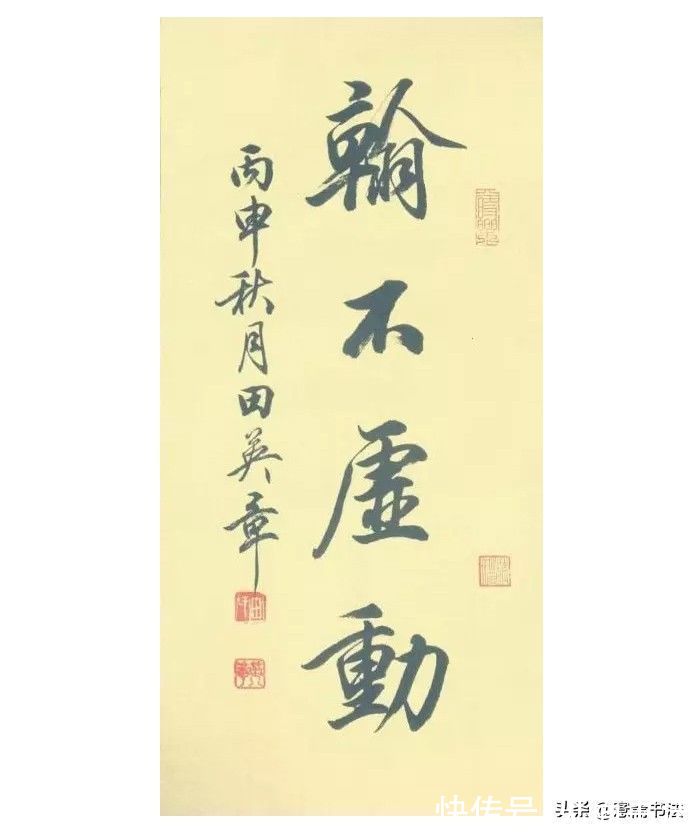 翰不虚動
丙申秋月田英章
快传号
头条@